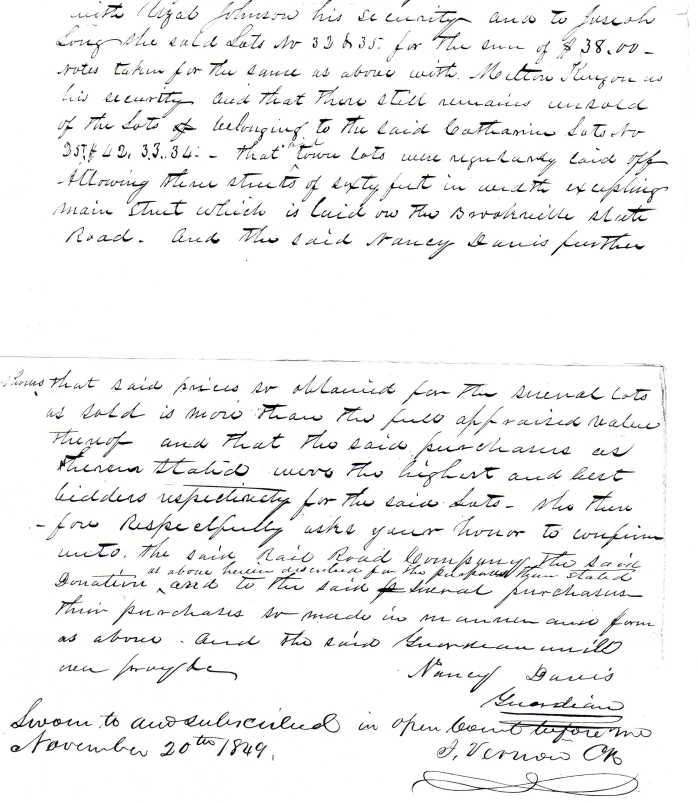 with Royal Johnson his security and to Joseph
Long she sold Lots No 32 & 35. for the sum of $38.00 -
notes taken for the same as above with Milton as
his security and that there still remains unsold
of the Lots belonging to the said Catharine Lots No
42. 33. 34. - that town lots were regularly laid off
Allowing three streets of sixty feet in width excepting
main street which is laid on the Brookville state
Road. And the said Nancy Davis further
shows that said prices so obtained for the several lots
as sold is more than the full appraised value
thereof and that the said purchasers as
therein stated were the highest and best
bidders respectively for the said Lots - she there
- fore Respectfully asks your honor to confirm
unto the said Rail Road Company the said
as above herein described for the purposes then stated
Donation and to the said several purchasers
their purchases so made in manner and form
as above. And the said Guardian will
ever pray &c
Nancy Davis
Guardian
Sworn to and subscribed in open Court before me
November 20th 1849.
J. Vernon Clk